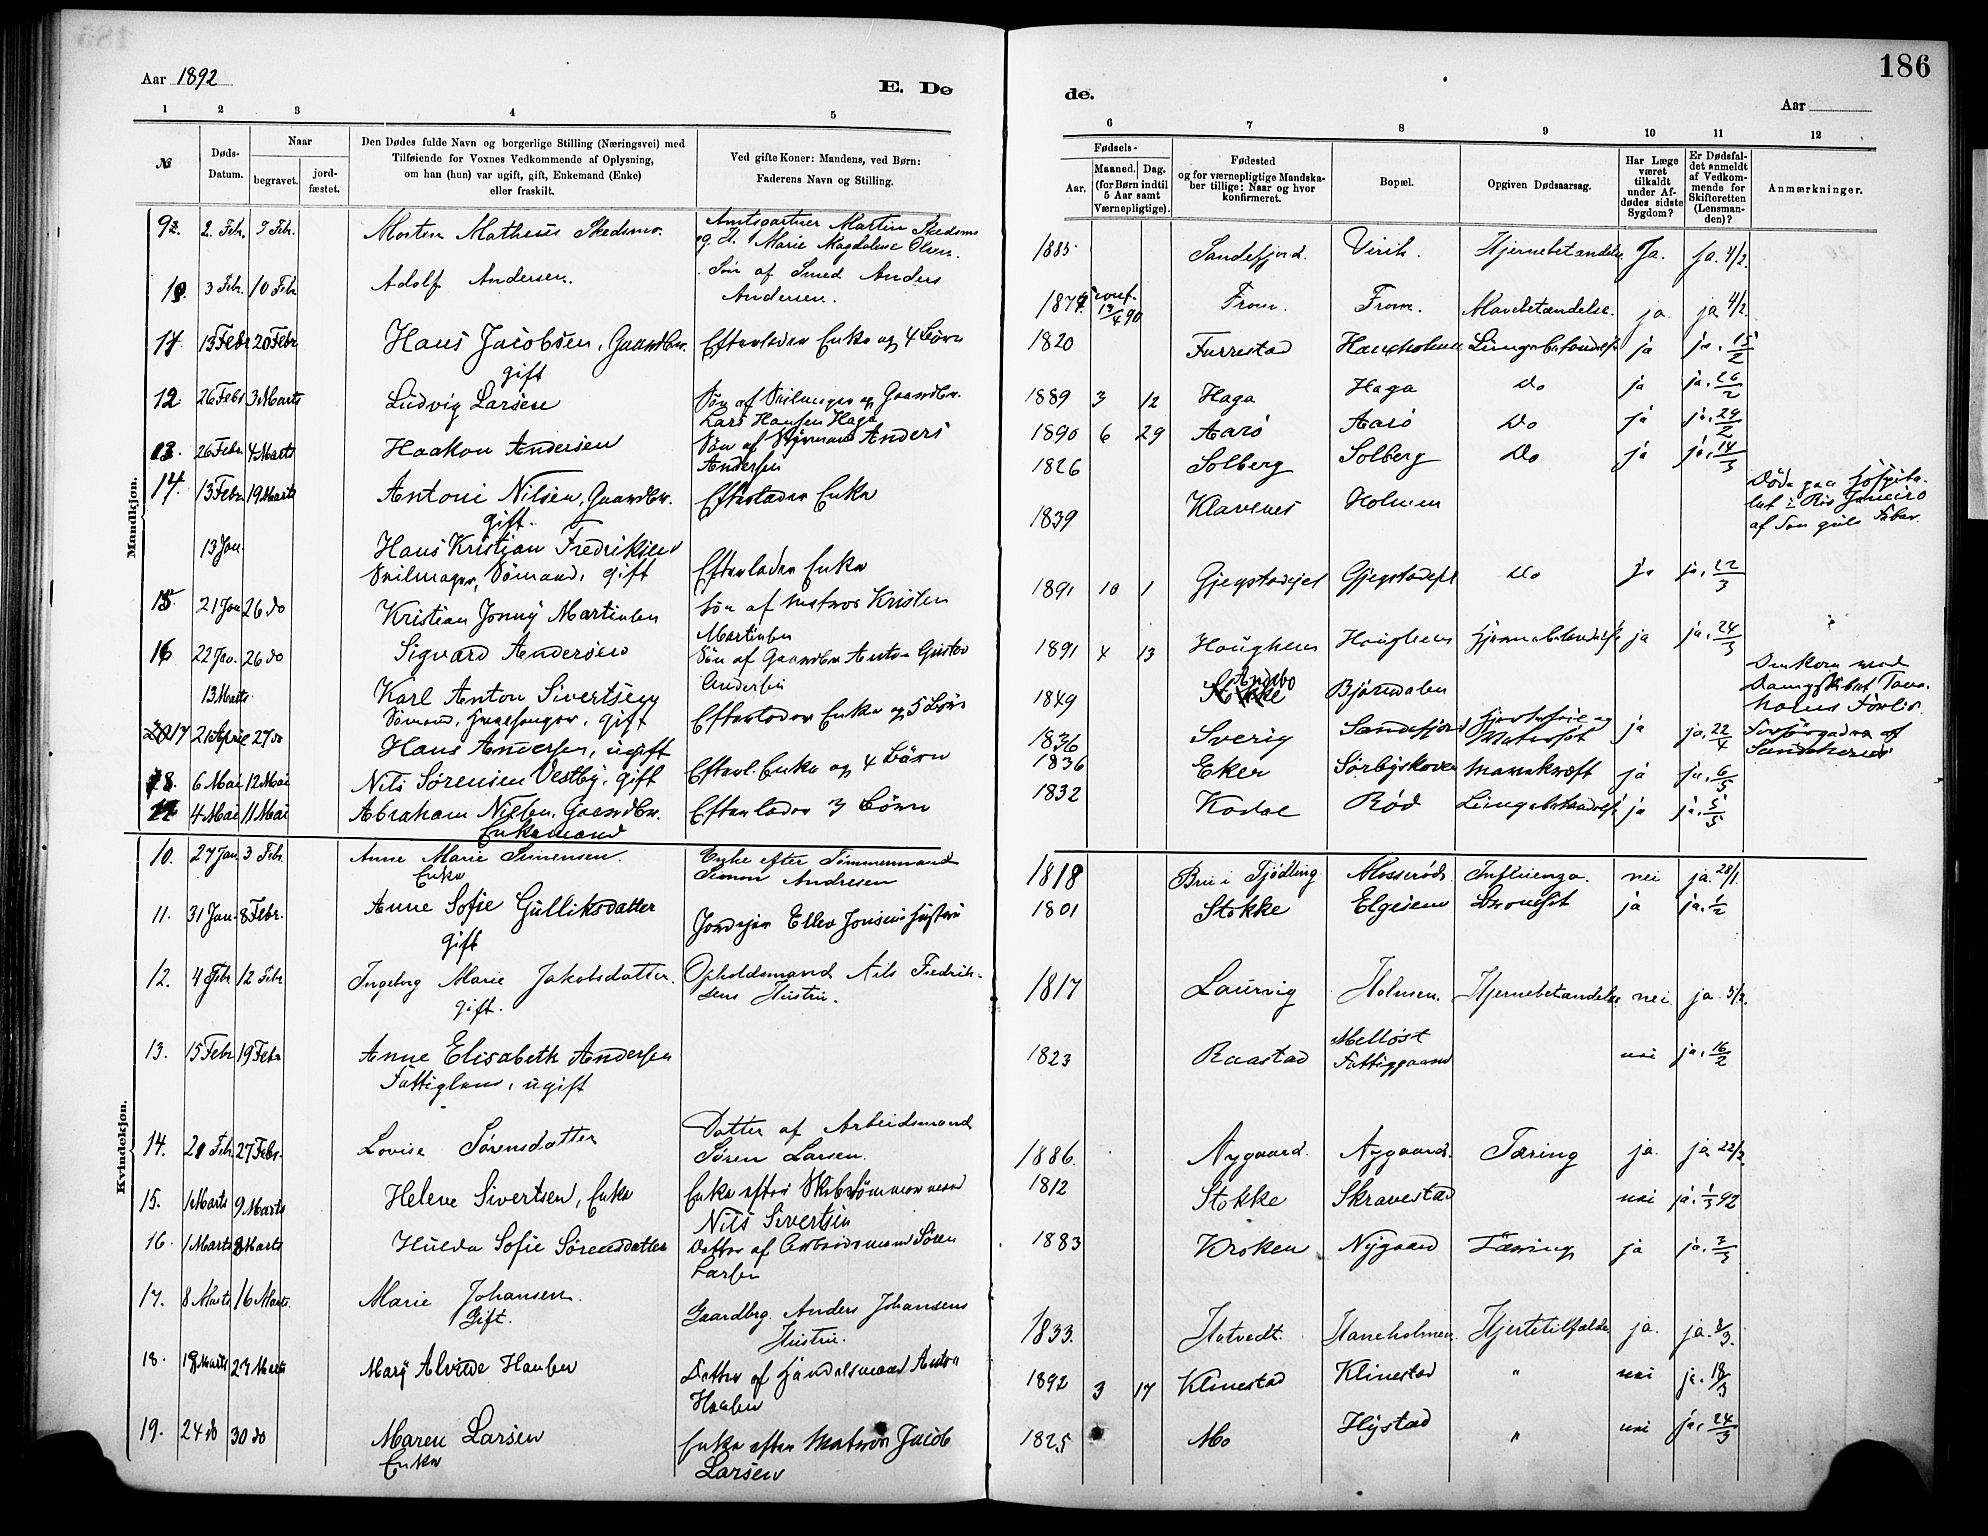 186
Aar 1892
E. Dø
de.
Aar
1 2 3 4 5 6 7 8 9 10 11 12
№
Døds-
Datum.
Naar
begravet.
jord-
fæstet.
Den Dødes fulde Navn og borgerlige Stilling (Næringsvei) med
Tilføiende for Voxnes Vedkommende af Oplysning,
om han (hun) var ugift, gift, Enkemand (Enke)
eller fraskilt.
Ved gifte Koner: Mandens, ved Børn:
Faderens Navn og Stilling.
Fødsels-
Aar.
Maaned. Dag.
(for Børn indtil
5 Aar samt
Værnepligtige).
Fødested
og for værnepligtige Mandska-
ber tillige: Naar og hvor
konfirmeret.
Bopæl.
Opgiven Dødsaarsag.
Har Læge
været
tilkaldt
under Af-
dødes sidste
Sygdom?
Er Dødsfal-
det anmeldt
af Vedkom-
mende for
Skifteretten
(Lensman-
den)?
Anmærkninger.
Mandkjøn.
9. 2. Feb. 9 Feb. Morten Matheus Skedsmo. Amtsgartner Martin Skedsmo
og H. Marie Magdalene Olsen. 1885 Sandefjord. Virik. Hjernebetændelse Ja. ja. 4/2.
10. 3 Feb. 10 Feb. Adolf Andersen. Søn af Smed Anders
Andersen. 1874 conf. 13/4 90 From. From. Mavebetændelse. ja ja 4/2.
11. 13 Febr 20 Febr Hans Jacobsen, Gaardbr.
gift Efterlader Enke og 4 Børn 1820 Furrestad Haneholmen Lungebetændelse ja ja. 15/2
12. 26 Febr 3 Marts Ludvig Larsen Søn af Seilmager og Gaardbr.
Lars Hansen Haga 1889 3 12 Haga Haga Do ja ja. 26/2
13. 26 Febr 4 Marts Haakon Andersen Søn af Styrmand Anders
Andersen 1890 6 29 Aarø Aarø Do ja ja. 29/2
14. 13 Febr 19 Marts Antoni Nilsen, Gaardbr.
gift. Efterlader Enke 1826 Solberg Solberg Do ja ja. 14/3
13 Jan. Hans Kristian Fredriksen
Seilmager, Sømand, gift Efterlader Enke 1839 Klavenes Holmen Døde paa Hospita-
let i Rio Janeiro
af den gule Feber.
15. 21 Jan 26 do Kristian Jonny Martinsen Søn af Matros Kristen
Martinsen 1891 10 1 Gjegstadejet Gjegstadejet Do ja ja. 22/3
16 22 Jan. 26 do Sigvard Andersen Søn af Gaardbr Anton Gustav
Andersen 1891 4 13 Haughem Haughem Hjernebetændelse ja ja. 24/3
13 Marts. Karl Anton Sivertsen
Sømand, gift Efterlader Enke og 5 Børn 1849 Andebo Bjørndalen Omkom med
Dampskibet
Forlis.
17 21 April 27 do Hans Andersen, ugift 1836 Sverig Sandefjord ja ja. 22/4 Forsørgedes af
Sandeherred
18. 6 Mai 12 Mai Nils Sørensen Vestby, gift Efterl. Enke og 4 Børn 1836 Eker Sørbyskoven Mavekræft ja ja. 6/5
4 Mai 11 Mai Abraham Nilsen, Gaardbr.
Enkemand Efterlader 3 Børn 1832 Kodal Rød Lungebetændelse ja ja. 5/5
Kvindekjøn.
10. 27 Jan. 3 Feb. Anne Marie Simensen.
Enke Enke efter Tømmermand
Simon Andresen 1818 Bru i Tjødling. Mosserød. Influenza. nei ja. 28/1.
11. 31 Jan. 8 Febr. Anne Sofie Gulliksdatter
gift Jordejer Ellev Jonsens Hustru 1801 Stokke Elgesem ja ja. 1/2
12. 4 Feb 12 Febr Ingeborg Marie Jakobsdatter.
gift. Opholdsmand Nils Fredrik-
sens Hustru. 1817 Laurvig Holmen. Hjernebetændelse nei. ja. 5/2.
13. 15 Febr 19 Febr Anne Elisabeth Andersen
Fattiglem, ugift 1823 Raastad Melløst
Fattiggaard nei ja. 16/2
14. 20 Feb 27 Febr. Lovise Sørensdatter Datter af Arbeidsmand
Søren Larsen. 1886. Nygaard. Nygaard. Tæring ja. ja 22/2
15. 1 Marts 9 Marts Helene Sivertsen, Enke Enke efter Skibstømmermand
Nils Sivertsen 1812 Stokke Skravestad nei ja. 1/3 92
16. 1 Marts 8 Marts Hulda Sofie Sørensdatter Datter af Arbeidsmand Søren
Larsen 1883 Kroken Nygaard Tæring ja ja. 2/3
17. 8 Marts 16 Marts. Marie Johansen.
Gift. Gaardbrg. Anders Johansens
Hustru. 1833. Hotvedt. Haneholmen. Hjertetilfælde. ja. ja. 8/3.
18. 18 Marts 23 Marts Mary Alvilde Hansen Datter af Handelsmand Anton
Hansen 1892 3 17 Klinestad Klinestad " nei ja. 18/3
19. 24 do 30 do Maren Larsen
Enke Enke efter Matros Jacob
Larsen 1825 Mo Hystad " nei ja. 24/3